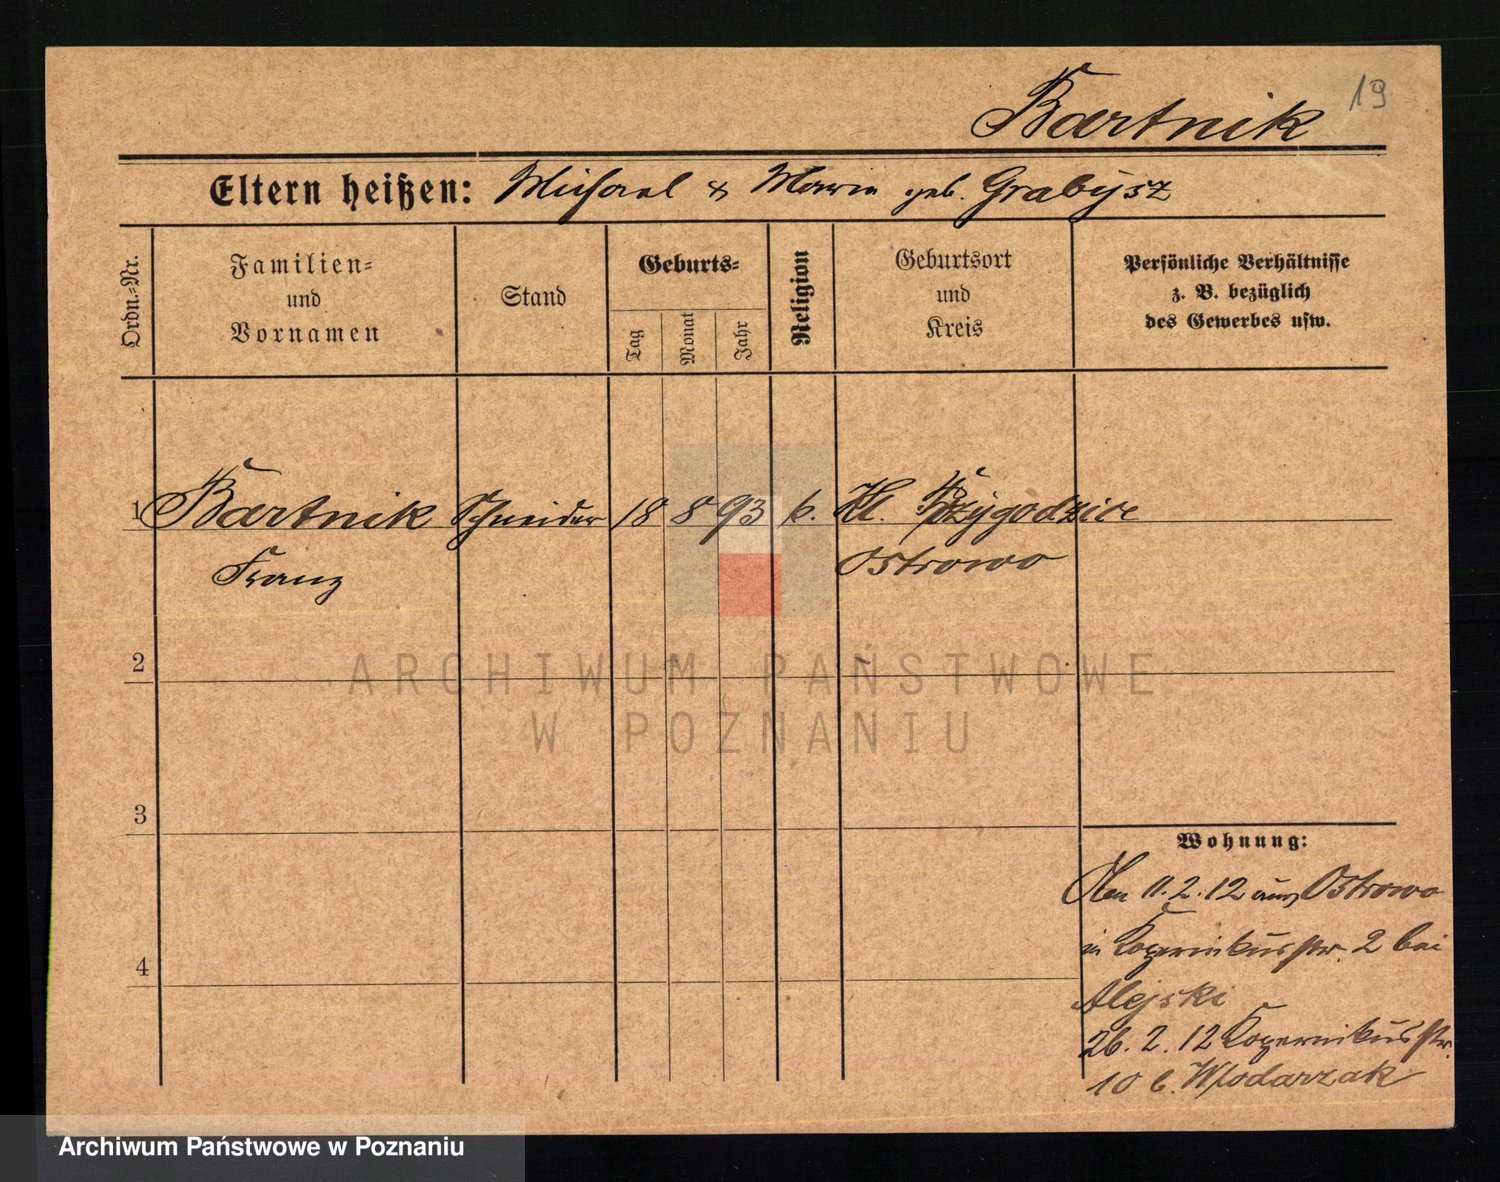 19
Bartnik
Eltern heißen: Michael & Maria geb. Grabysz
Ordn.-Nr.
Familien- und Vornamen
Stand
Geburts-
Tag
Monat
Jahr
Religion
Geburtsort und Kreis
Persönliche Verhältnisse
z. B. bezüglich
des Gewerbes usw.
1 Bartnik Schneider 18 8 93 k. Kl. Przygodzice
Franz Ostrowo
2
ARCHIWUM PAŃSTWOWE
W POZNANIU
3
Wohnung:
Den 11.2.12 aus Ostrowo
in Kopernikusstr. 2 bei
4
Alejski
26.2.12 Kopernikusstr.
10 b. Wlodarzak
Archiwum Państwowe w Poznaniu